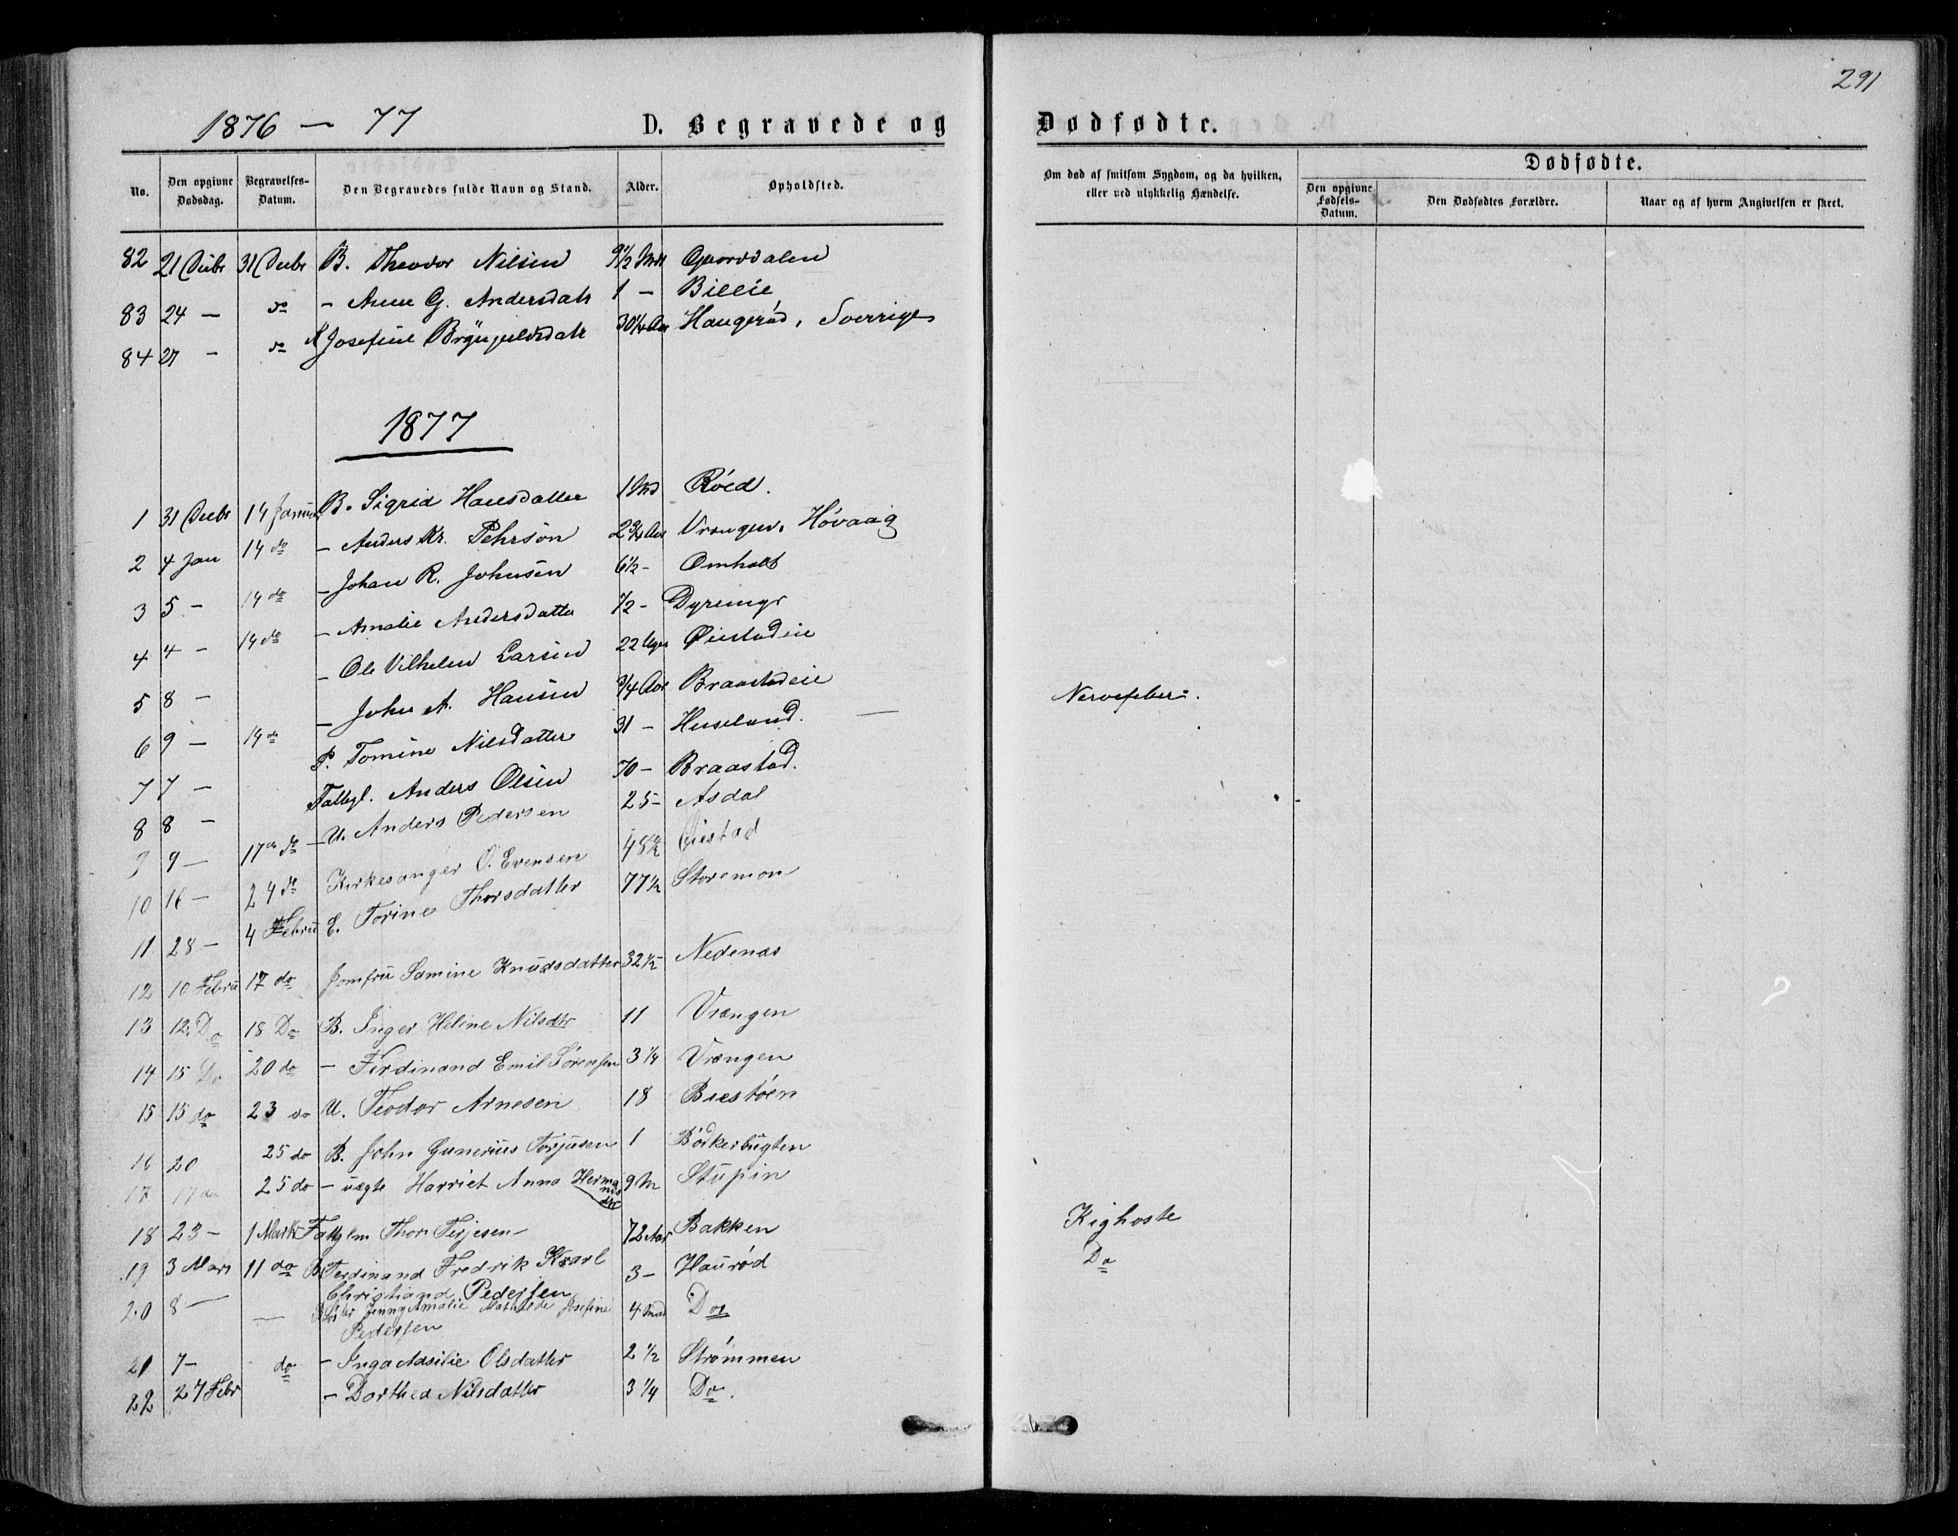 291
1876 — 77 D. Begravede og Dødfødte.
No. Den opgivne Dødsdag. Begravelses-Datum. Den Begravedes fulde Navn og Stand. Alder. Opholdsted. Om død af smitsom Sygdom, og da hvilken, eller ved ulykkelig Hændelse. Dødfødte. Den opgivne Fødsels-Datum. Den Dødfødtes Forældre. Naar og af hvem Angivelsen er skeet.
82 21 Decbr 31 Decbr B. Theodor Nilsen 9½ Mdr Gaardsdalen
83 24 — do - Anne G. Andersdatr 1 - Bieeie
84 27 - do Josefine Bryngelsdatr 30¼ Aar Haugerød, Sverrige
1877
1 31 Decbr 14 Januar B. Sigrid Hansdatter 1 Md Røed.
2 4 Jan 14 do - Anders Kr. Pehrsøn 2¾ Aar Vrængen, Høvaag
3 5 - 14 do - Johan R. Johnsen 6½ - Omholt
4 4 - 14 do - Amalie Andersdatter ½ - Dyremyr
5 8 - - Ole Vilhelm Larsen 22 Uger Øiestadeie
6 9 - 14 do - John A. Hansen ¾ Aar Braastadeie Nervefeber.
7 7 - P. Tomine Nilsdatter 31 - Huseland. —
8 8 - Fattigl. Anders Olsen 70 - Braastad.
9 9 - 17de do - U. Anders Pedersen 25 - Asdal
10 16 - 24 do Kirkesanger O. Evensen 48½ Øiestad
11 28 - 4 Febru E. Torine Thorsdatter 77½ Storemon
12 10 Febru 17 do Jomfru Samine Knudsdatter 32½ Nedenæs
13 12. Do 18 Do B. Inger Heline Nilsdtr 11 Vrængen
14 15 Do 20 do - Ferdinand Emil Sørensen 3¼ Vrængen
15 15 do 23 do U. Teodor Arnesen 18 Biestøen
16 20 25 do B. John Gunerius Torjusen 1 Bødkerbugten
17 17 do 25 do - uægte Harriet Anna Hermansdtr 9 M Stupin
18 23 - 1 Marts Fattiglm Thor Terjesen 72 Aar Bakken Kighoste
19 3 Mars 11 do B Ferdinand Fredrik Karl 3 - Haurød Do
Christiand Pedersen
20 8 — — Jenny Amalie Mathilde Josefine 4 Md Do
Pedersen
21 7 - do - Inga Aasilie Olsdatter 2½ Strømmen
22 27 Febr - Dorthea Nilsdatter 3¼ Do.